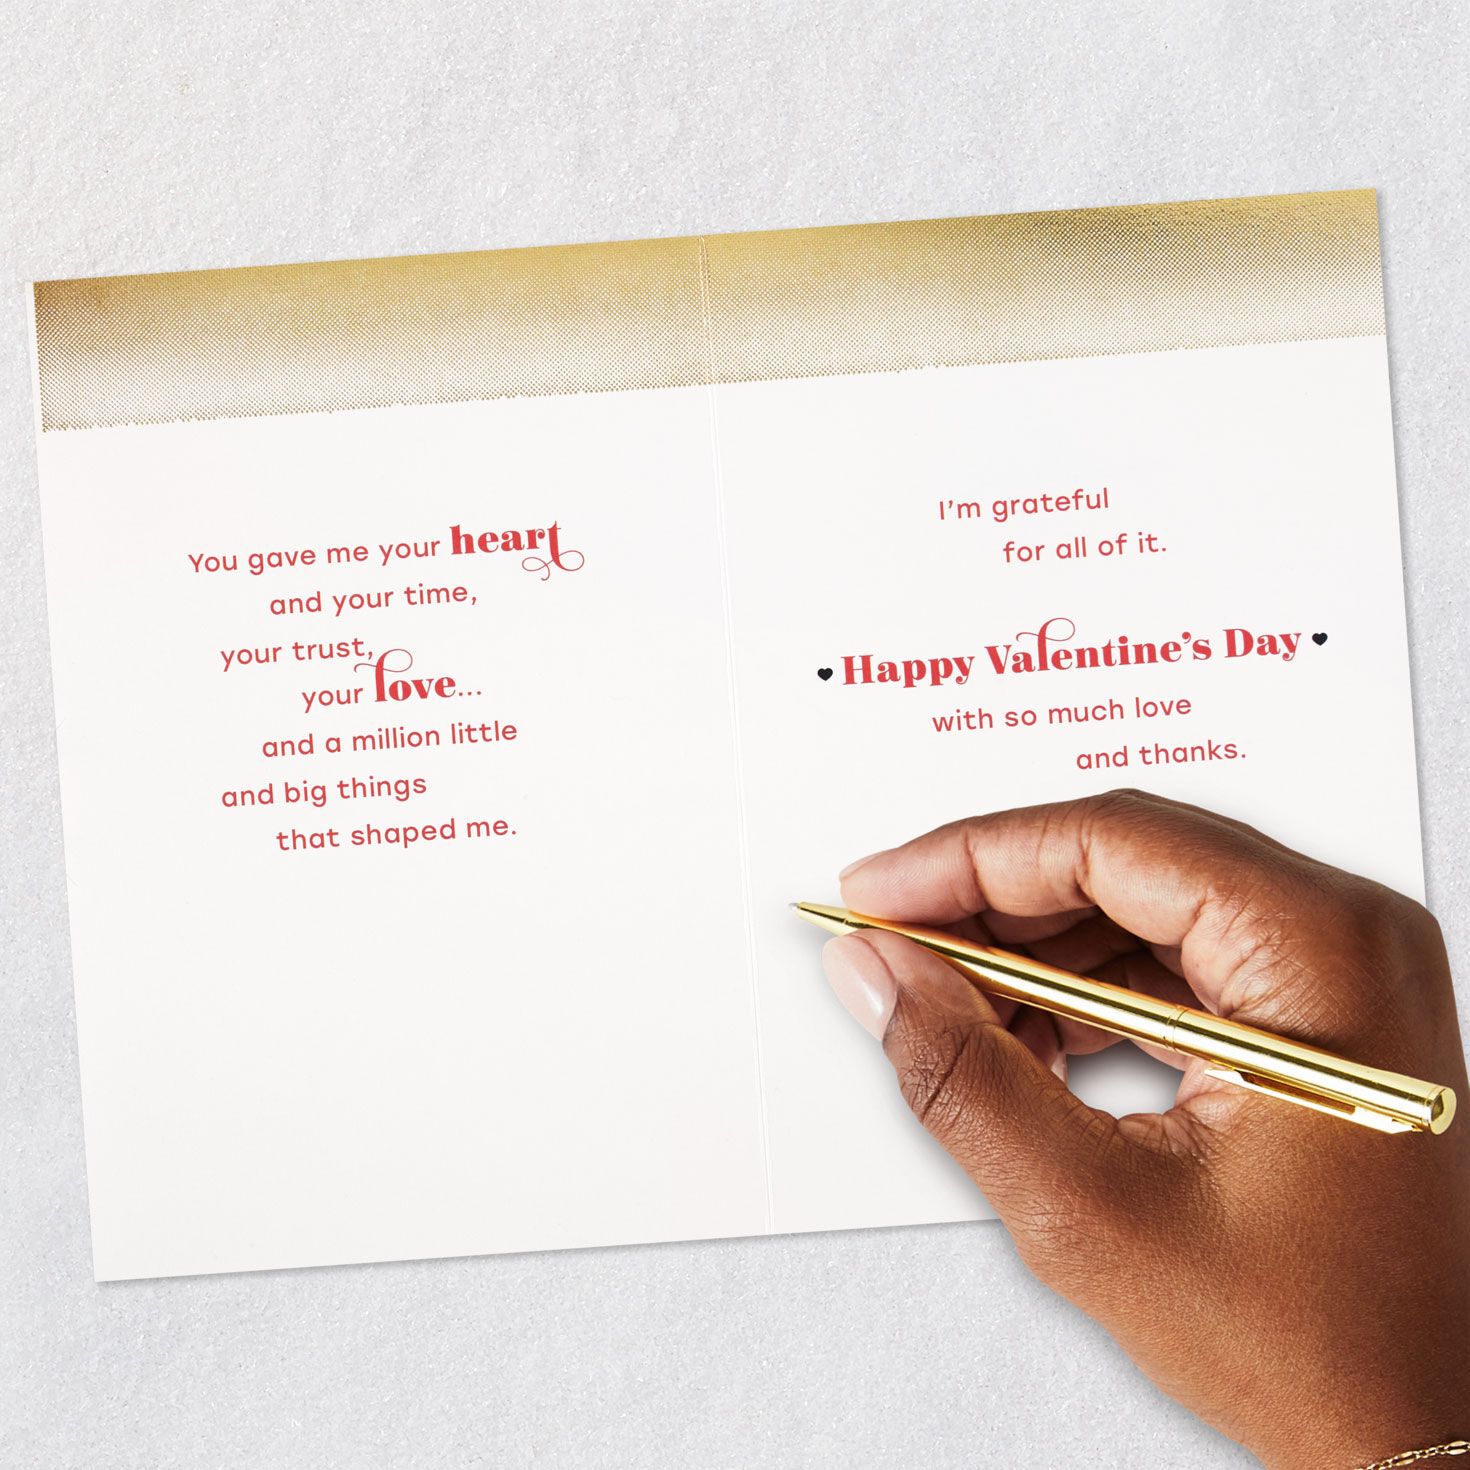 You gave me your heart
and your time,
your trust,
your love...
and a million little
and big things
that shaped me.
I'm grateful
for all of it.
Happy Valentine's Day
with so much love
and thanks.